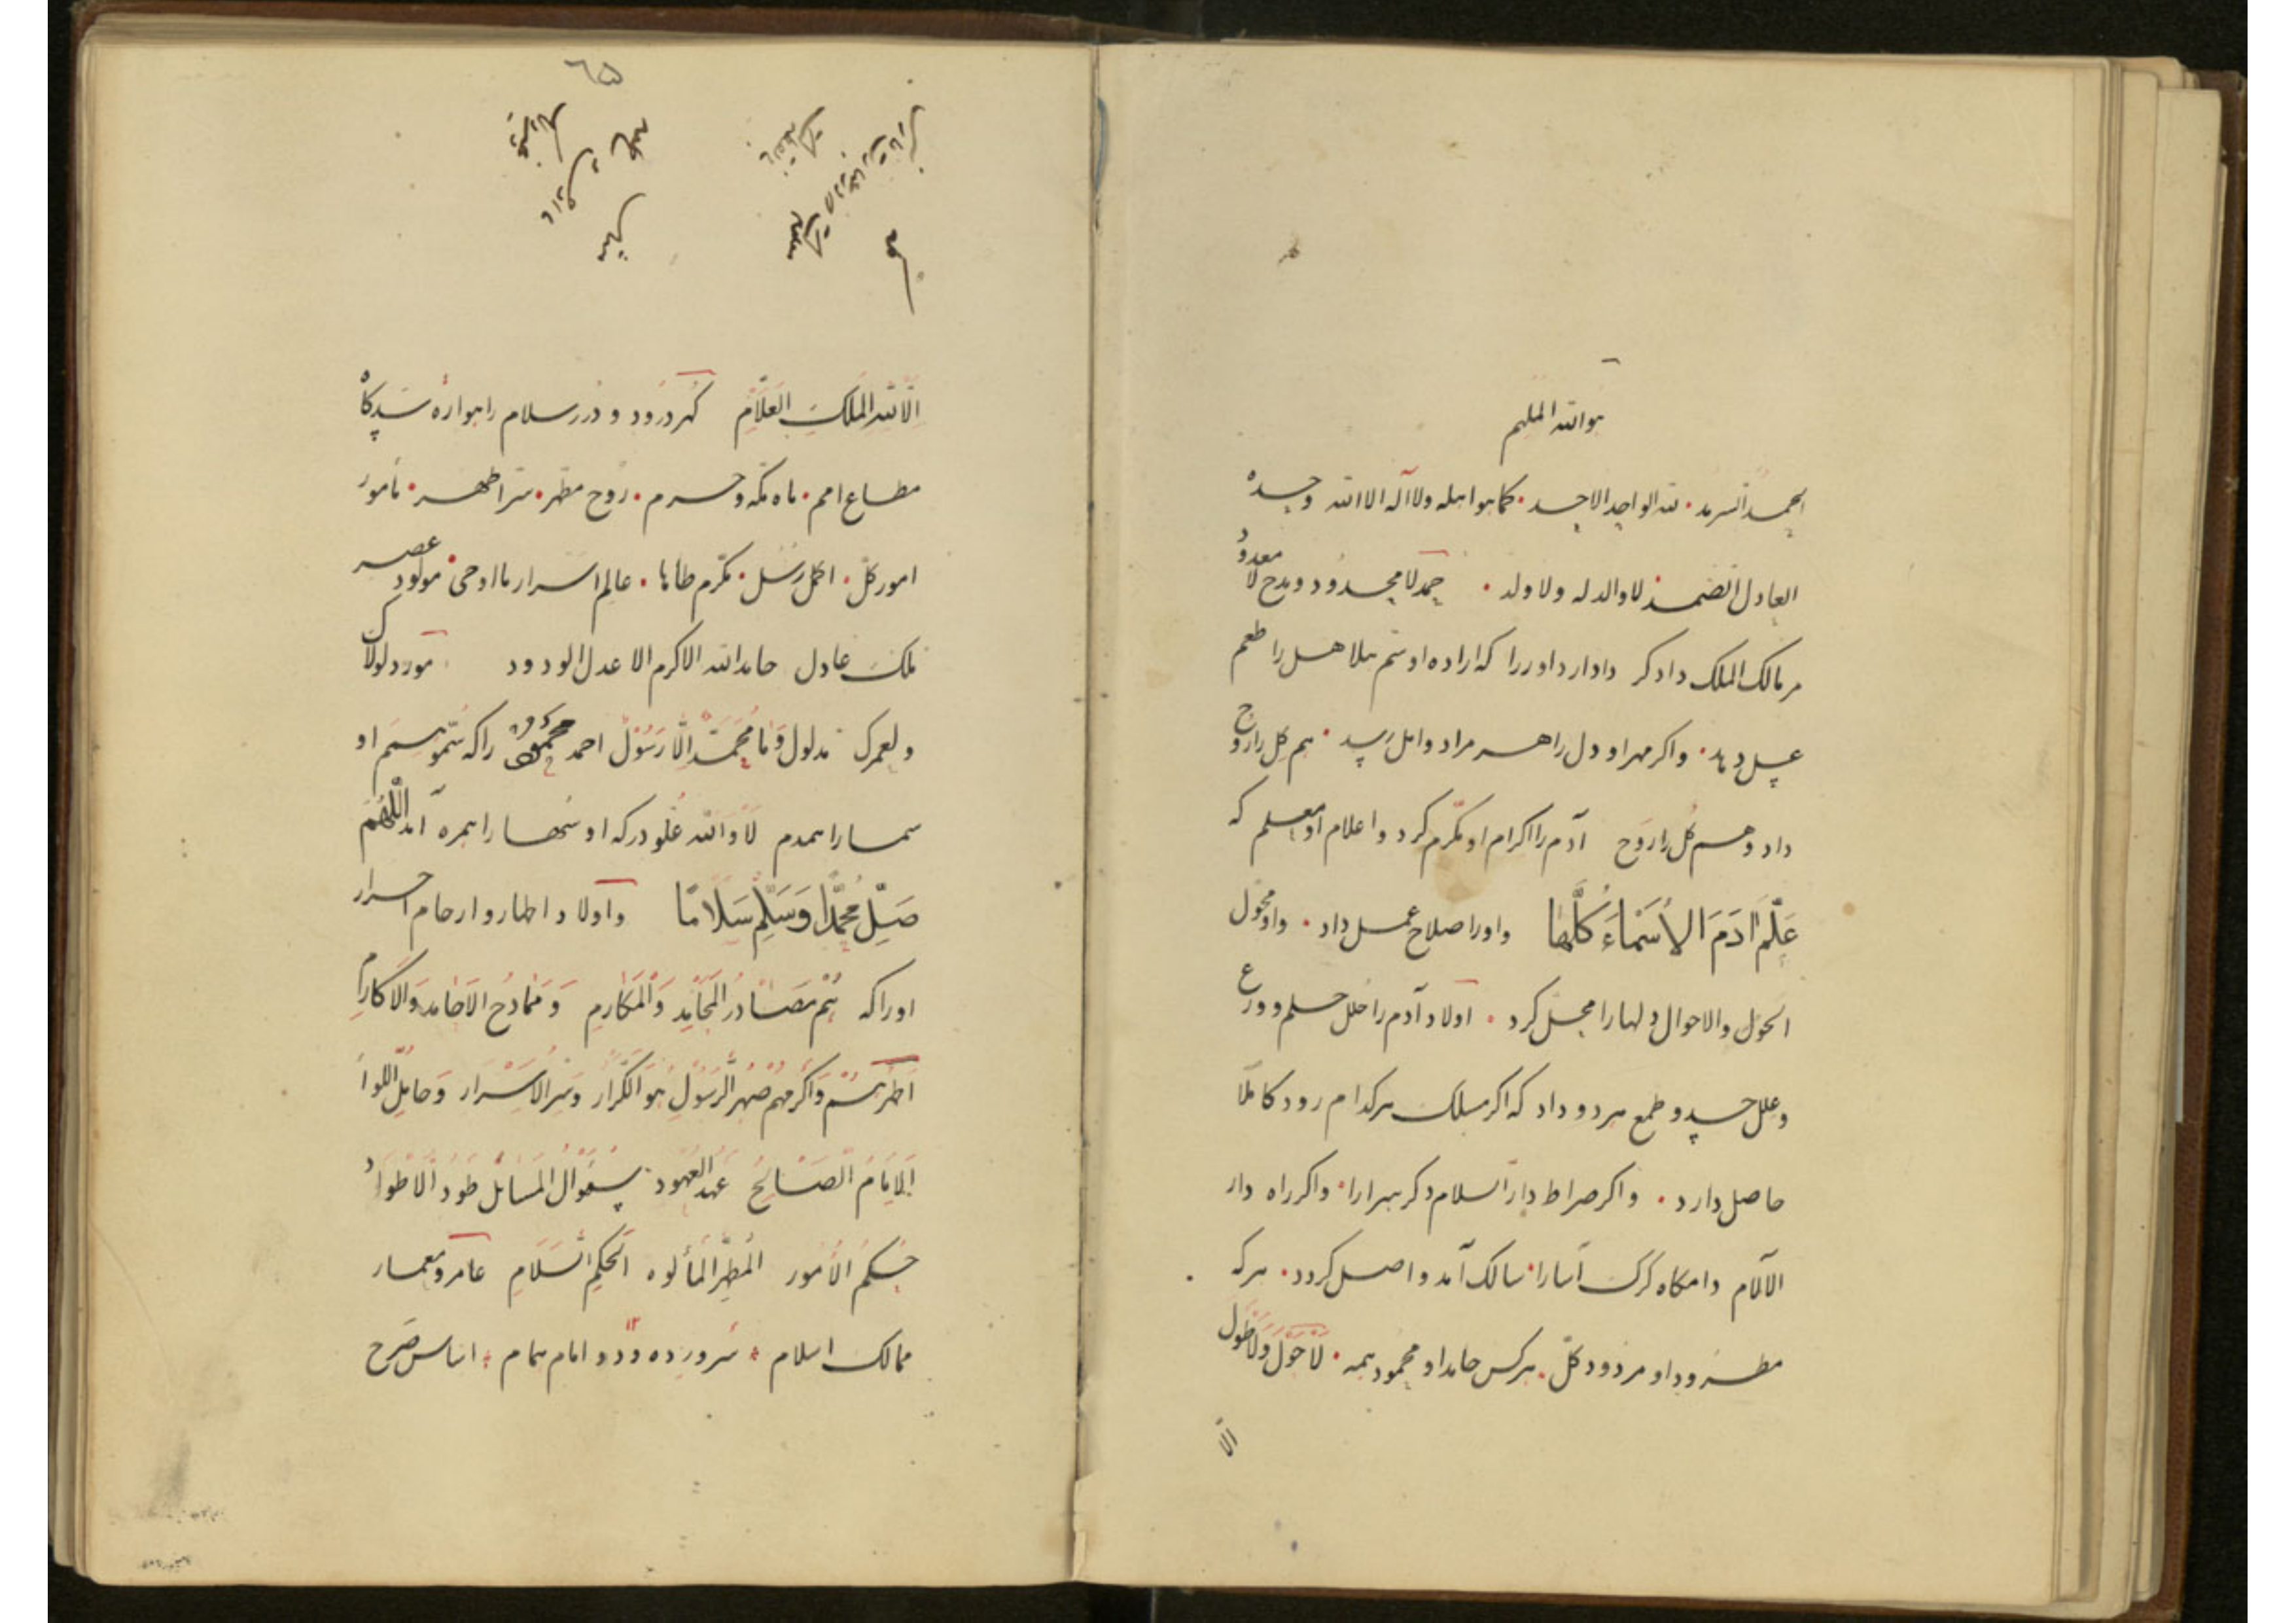 هو الله الملهم
الحمد السرمد • لله الواحد الاحد • کما هو اهله ولا آله الا الله وحده
العادل الصمد لا والد له ولا ولد • حمد لا محدود ومدح لا معدود
مر مالک الملک دادکر دادار داور را که اراده او سم هلاهل را طعم
عسل دهد • واکر مهر او دل را هر مراد و امل رسد • هم کل را روح
داد و هم کل را روح آدم را اکرام او مکرم کرد و اعلام او معلم که
عَلَّمَ آدَمَ الأَسْمَاءَ كُلَّهَا واو را صلاح عمل داد • واو محول
الحول والاحوال دلها را محل کرد • اولاد آدم را حلل حلم و ورع
و علل حسد و طمع هر دو داد که اکر مسلک هر کدام رود کاملا
حاصل دارد • واکر صراط دار السلام دکر هر ارا • واکر راه دار
الآلام دامکاه کرک آسا را • سالک آمد واصل کردد • هر که
مطرود او مردود کل • هر کس حامد او محمود همه • لا حول ولا طول
الّا
٦٥
الّا لله الملک العلّام کهر درود و درر سلام را هواره سدکاه
مطاع امم • ماه مکه و حرم • روح مطهر • سر اطهر • مامور
امور کل • اکمل رسل • مکرم طاها • عالم اسرار ما اوحی • مولود عصر
ملک عادل حامد الله الاکرم الاعدل الودود مورد لولاک
و لعمرک مدلول وَمَا مُحَمَّدٌ إِلَّا رَسُولٌ احمد محمود را که سمو سم او
سما را همدم لا والله علو درکه او سها را همره آمد اللّهُمَّ
صَلِّ مُحَمَّدًا وَسَلِّمْ سَلَامًا و اولاد اطهار و ارحام احرار
او را که هُم مَصَادِرُ المَحَامِدِ وَالمَكَارِمِ وَمَمَادِحُ الأَمَاجِدِ وَالأَكَارِمِ
اطهرهم و اکرمهم صهر الرسول هو الکرار و سر الاسرار و حامل اللواء
الامام الصالح عهد العهود سؤال المسائل طود الاطواد
حکم الامور المطهر المألوه الحکم السلام عامر و معمار
ممالک اسلام • سرور ده و دو امام همام • اساس صرح